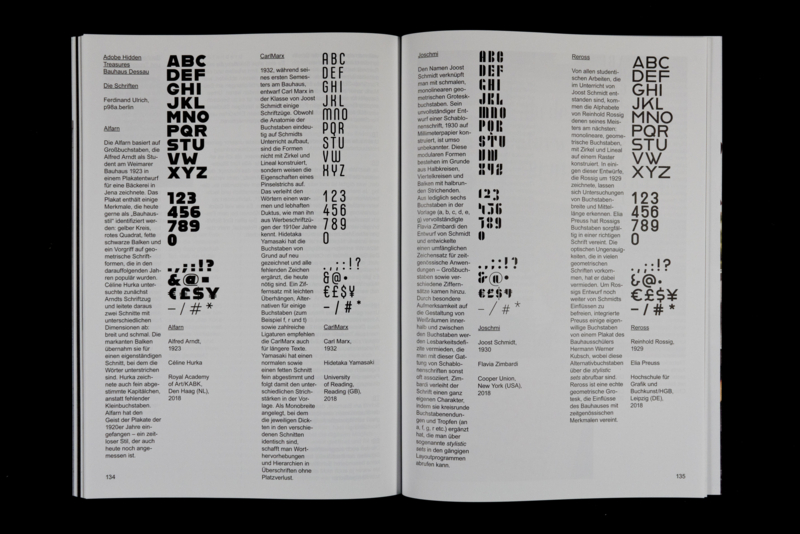 Adobe Hidden
Treasures
Bauhaus Dessau
Die Schriften
Ferdinand Ulrich,
p98a berlin
Alfarn
Die Alfarn basiert auf
Großbuchstaben, die
Alfred Arndt als Stu-
dent am Weimarer
Bauhaus 1923 in
einem Plakatentwurf
für eine Bäckerei in
Jena zeichnete. Das
Plakat enthält einige
Merkmale, die heute
gerne als „Bauhaus-
stil“ identifiziert wer-
den: gelber Kreis,
rotes Quadrat, fette
schwarze Balken und
ein Vorgriff auf geo-
metrische Schrift-
formen, die in den
darauffolgenden Jah-
ren populär wurden.
Céline Hurka unter-
suchte zunächst
Arndts Schriftzug
und leitete daraus
zwei Schnitte mit
unterschiedlichen
Dimensionen ab:
breit und schmal. Die
markanten Balken
übernahm sie für
einen eigenständigen
Schnitt, bei dem die
Wörter unterstrichen
sind. Hurka zeich-
nete auch fein abge-
stimmte Kapitälchen,
anstatt fehlender
Kleinbuchstaben.
Alfarn hat den
Geist der Plakate der
1920er Jahre ein-
gefangen – ein zeit-
loser Stil, der auch
heute noch ange-
messen ist.
134
ABC
DEF
GHI
JKL
MNO
PQR
STU
VW
XYZ
123
456
789
0
.,;:!?
&@•
€£$Y
–/#*
Alfarn
Alfred Arndt,
1923
Céline Hurka
Royal Academy
of Art/KABK,
Den Haag (NL),
2018
CarlMarx
1932, während sei-
nes ersten Semes-
ters am Bauhaus,
entwarf Carl Marx in
der Klasse von Joost
Schmidt einige
Schriftzüge. Obwohl
die Anatomie der
Buchstaben eindeu-
tig auf Schmidts
Unterricht aufbaut,
sind die Formen
nicht mit Zirkel und
Lineal konstruiert,
sondern weisen die
Eigenschaften eines
Pinselstrichs auf.
Das verleiht den
Wörtern einen war-
men und lebhaften
Duktus, wie man ihn
aus Werbeschriftzü-
gen der 1910er Jahre
kennt. Hidetaka
Yamasaki hat die
Buchstaben von
Grund auf neu
gezeichnet und alle
fehlenden Zeichen
ergänzt, die heute
nötig sind. Ein Zif-
fernsatz mit leichten
Überhängen, Alter-
nativen für einige
Buchstaben (zum
Beispiel f, r und t)
sowie zahlreiche
Ligaturen empfehlen
die CarlMarx auch
für längere Texte.
Yamasaki hat einen
normalen sowie
einen fetten Schnitt
fein abgestimmt und
folgt damit den unter-
schiedlichen Strich-
stärken in der Vor-
lage. Als Monobreite
angelegt, bei dem
die jeweiligen Dick-
ten in den verschie-
denen Schnitten
identisch sind,
schafft man Wort-
hervorhebungen
und Hierarchien in
Überschriften ohne
Platzverlust.
ABC
DEF
GHI
JKL
MNO
PQR
STU
VW
XYZ
123
456
789
0
.,;:!?
&@•
€£$¥
–/#*
CarlMarx
Carl Marx,
1932
Hidetaka Yamasaki
University
of Reading,
Reading (GB),
2018
Joschmi
Den Namen Joost
Schmidt verknüpft
man mit schmalen,
monolinearen geo-
metrischen Grotesk-
buchstaben. Sein
unvollständiger Ent-
wurf einer Schablo-
nenschrift, 1930 auf
Millimeterpapier kon-
struiert, ist umso
unbekannter. Diese
modularen Formen
bestehen im Grunde
aus Halbkreisen,
Viertelkreisen und
Balken mit halbrun-
den Strichenden.
Aus lediglich sechs
Buchstaben in der
Vorlage (a, b, c, d, e,
g) vervollständigte
Flavia Zimbardi den
Entwurf von Schmidt
und entwickelte
einen umfänglichen
Zeichensatz für zeit-
genössische Anwen-
dungen – Großbuch-
staben sowie ver-
schiedene Ziffern-
sätze kamen hinzu.
Durch besondere
Aufmerksamkeit auf
die Gestaltung von
Weißräumen inner-
halb und zwischen
den Buchstaben wer-
den Lesbarkeitsdefi-
zite vermieden, die
man mit dieser Gat-
tung von Schablo-
nenschriften sonst
oft assoziiert. Zim-
bardi verleiht der
Schrift einen ganz
eigenen Charakter,
indem sie kreisrunde
Buchstabenendun-
gen und Tropfen (an
a, f, g, r etc.) ergänzt
hat, die man über
sogenannte stylistic
sets in den gängigen
Layoutprogrammen
abrufen kann.
ABC
DEF
GHI
JKL
MNO
PQR
STU
VW
XYZ
123
456
789
0
.,;:!?
&@•
€£$¥
–/#*
Joschmi
Joost Schmidt,
1930
Flavia Zimbardi
Cooper Union,
New York (USA),
2018
Reross
Von allen studenti-
schen Arbeiten, die
im Unterricht von
Joost Schmidt ent-
standen sind, kom-
men die Alphabete
von Reinhold Rossig
denen seines Meis-
ters am nächsten:
monolineare, geome-
trische Buchstaben,
mit Zirkel und Lineal
auf einem Raster
konstruiert. In eini-
gen dieser Entwürfe,
die Rossig um 1929
zeichnete, lassen
sich Untersuchungen
von Buchstaben-
breite und Mittel-
länge erkennen. Elia
Preuss hat Rossigs
Buchstaben sorgfäl-
tig in einer richtigen
Schrift vereint. Die
optischen Ungenauig-
keiten, die in vielen
geometrischen
Schriften vorkom-
men, hat er dabei
vermieden. Um Ros-
sigs Entwurf noch
weiter von Schmidts
Einflüssen zu
befreien, integrierte
Preuss einige eigen-
willige Buchstaben
von einem Plakat des
Bauhausschülers
Hermann Werner
Kutsch, wobei diese
Alternativbuchstaben
über die stylistic
sets abrufbar sind.
Reross ist eine echte
geometrische Gro-
tesk, die Einflüsse
des Bauhauses mit
zeitgenössischen
Merkmalen vereint.
ABC
DEF
GHI
JKL
MNO
PQR
STU
VW
XYZ
123
456
789
0
.,;:!?
&@•
€£$¥
–/#*
Reross
Reinhold Rossig,
1929
Elia Preuss
Hochschule für
Grafik und
Buchkunst/HGB,
Leipzig (DE),
2018
135